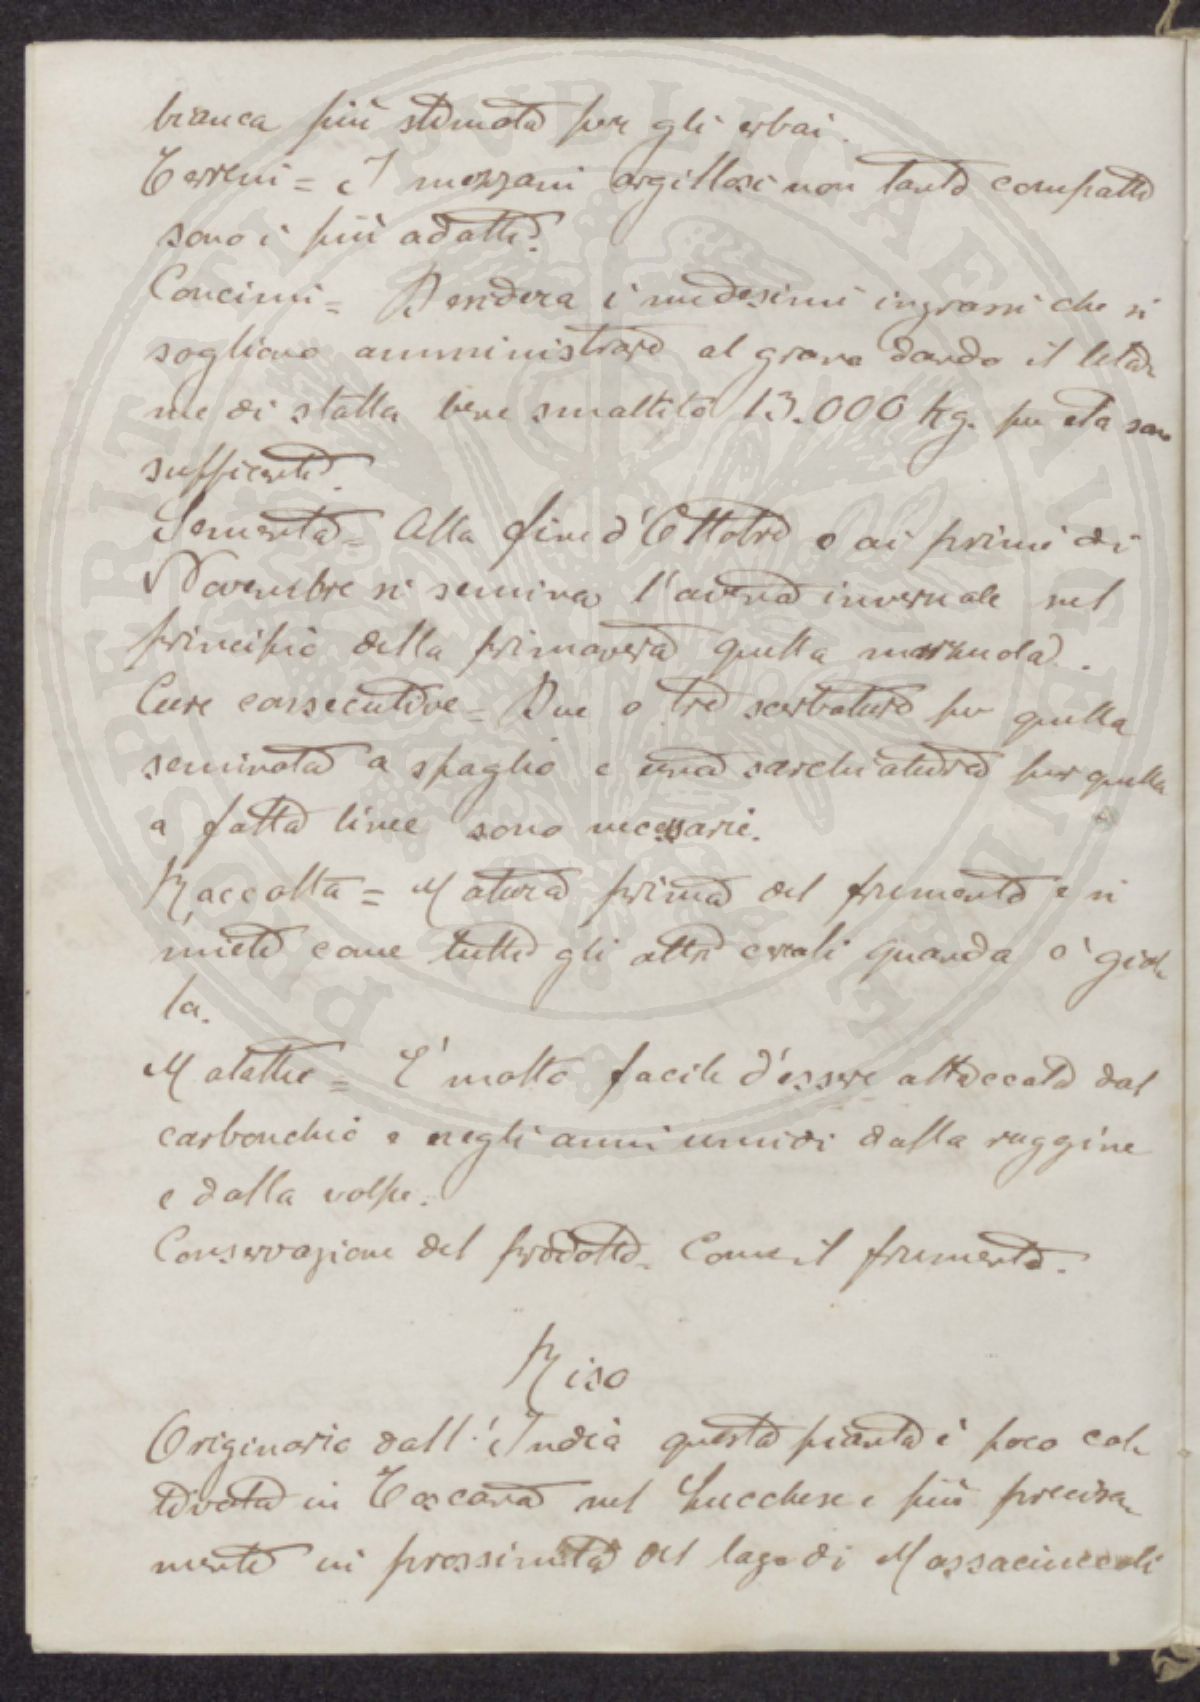 bianca più stimata per gli erbai.
Terreni = I mezzani argillosi non tanto compatti
sono i più adatti.
Concimi = Desidera i medesimi ingrassi che si
sogliono amministrare al grano dando il leta-
me di stalla bene smaltito 13.000 Kg. per eta sono
sufficenti.
Sementa = Alla fine d'Ottobre o ai primi di
Novembre si semina l'avena invernale nel
principio della primavera quella marzuola.
Cure consecutive = Due o tre scerbature per quella
seminata a spaglio e una sarchiatura per quella
a fatta linee sono necessarie.
Raccolta = Matura prima del frumento e si
miete come tutti gli altri cereali quando è gial-
la.
Malattie = E' molto facile d'essere attaccata dal
carbonchio e negli anni umidi dalla ruggine
e dalla volpe.
Conservazione del prodotto = Come il frumento.
Riso
Originario dall'India questa pianta è poco col-
tivata in Toscana nel Lucchese e più precisa-
mente in prossimità del lago di Massaciuccoli
PROSPERITATI PVBLICAE AVGENDAE